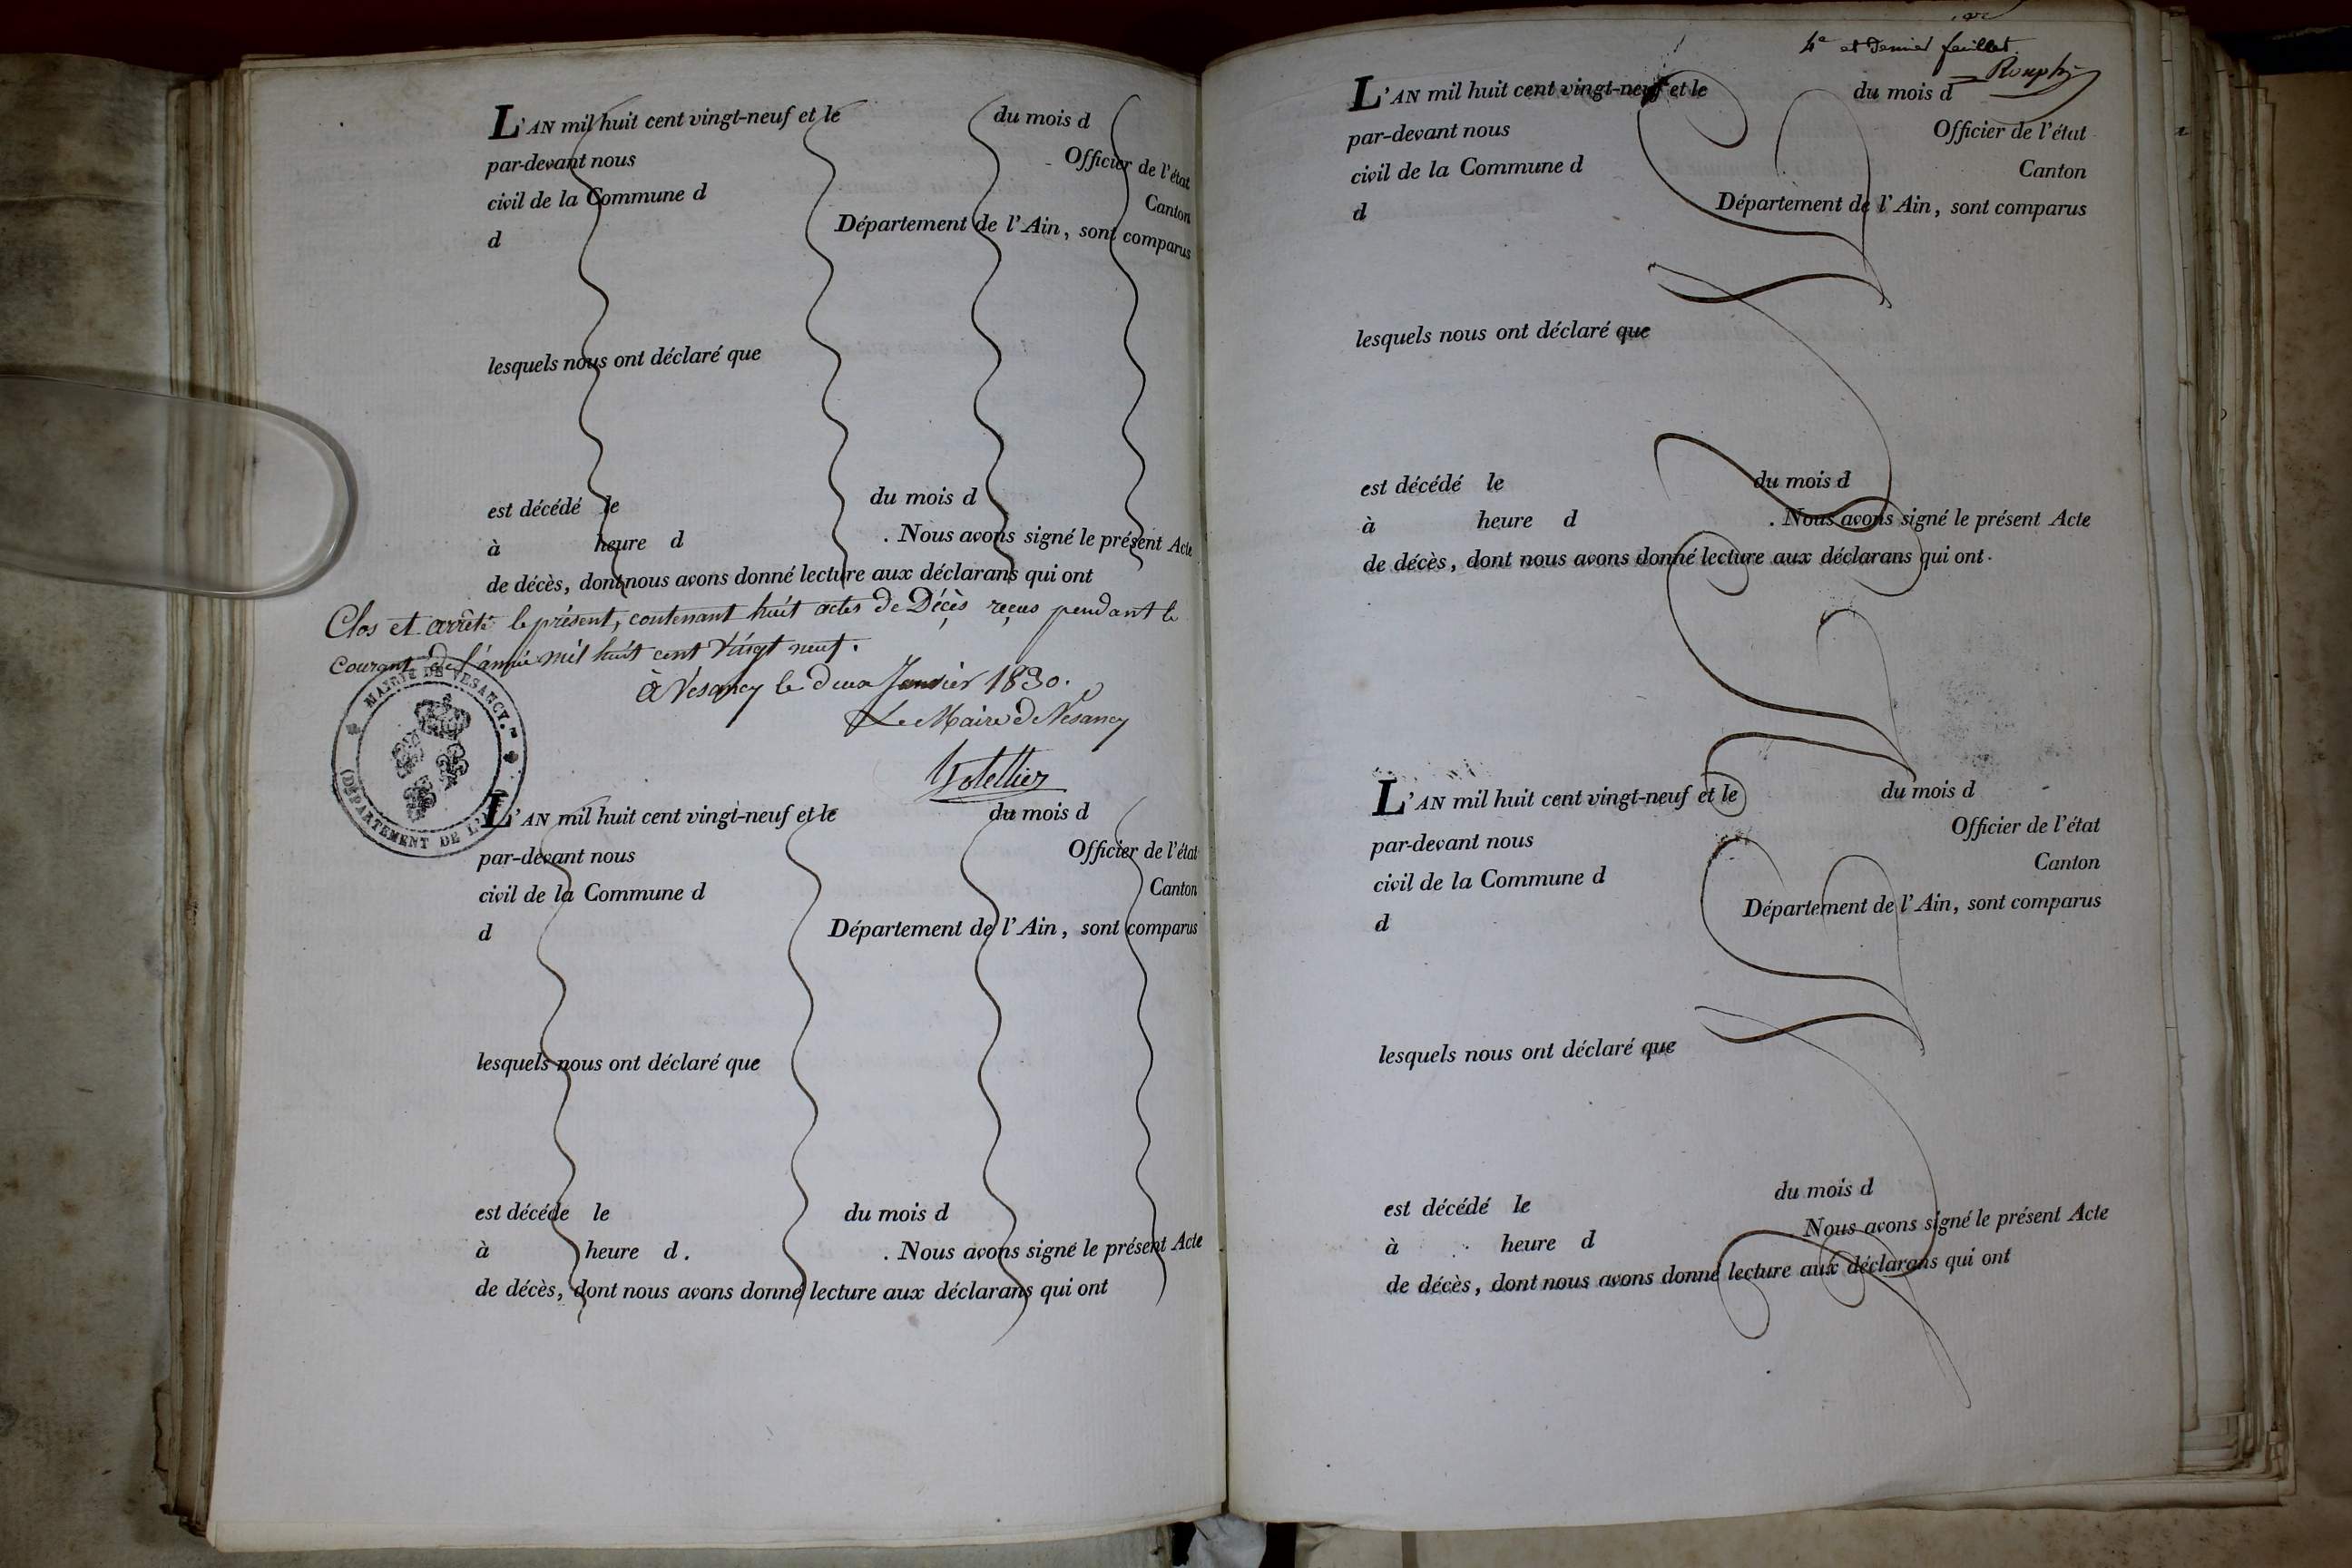 L'AN mil huit cent vingt-neuf et le du mois d
par-devant nous Officier de l'état
civil de la Commune d Canton
d Département de l'Ain, sont comparus
lesquels nous ont déclaré que
est décédé le du mois d
à heure d . Nous avons signé le présent Acte
de décès, dont nous avons donné lecture aux déclarans qui ont
Clos et arrêté le présent, contenant huit actes de Décès reçus pendant le
courant de l'année mil huit cent vingt neuf.
à Vesancy le deux Janvier 1830.
Le Maire de Vesancy
MAIRIE DE VESANCY.
(DÉPARTEMENT DE L'
L'AN mil huit cent vingt-neuf et le du mois d
par-devant nous Officier de l'état
civil de la Commune d Canton
d Département de l'Ain, sont comparus
lesquels nous ont déclaré que
est décédé le du mois d
à heure d . . Nous avons signé le présent Acte
de décès, dont nous avons donné lecture aux déclarans qui ont
4e et dernier feuillet.
L'AN mil huit cent vingt-neuf et le du mois d
par-devant nous Officier de l'état
civil de la Commune d Canton
d Département de l'Ain, sont comparus
lesquels nous ont déclaré que
est décédé le du mois d
à heure d . Nous avons signé le présent Acte
de décès, dont nous avons donné lecture aux déclarans qui ont
L'AN mil huit cent vingt-neuf et le du mois d
par-devant nous Officier de l'état
civil de la Commune d Canton
d Département de l'Ain, sont comparus
lesquels nous ont déclaré que
est décédé le du mois d
à heure d Nous avons signé le présent Acte
de décès, dont nous avons donné lecture aux déclarans qui ont